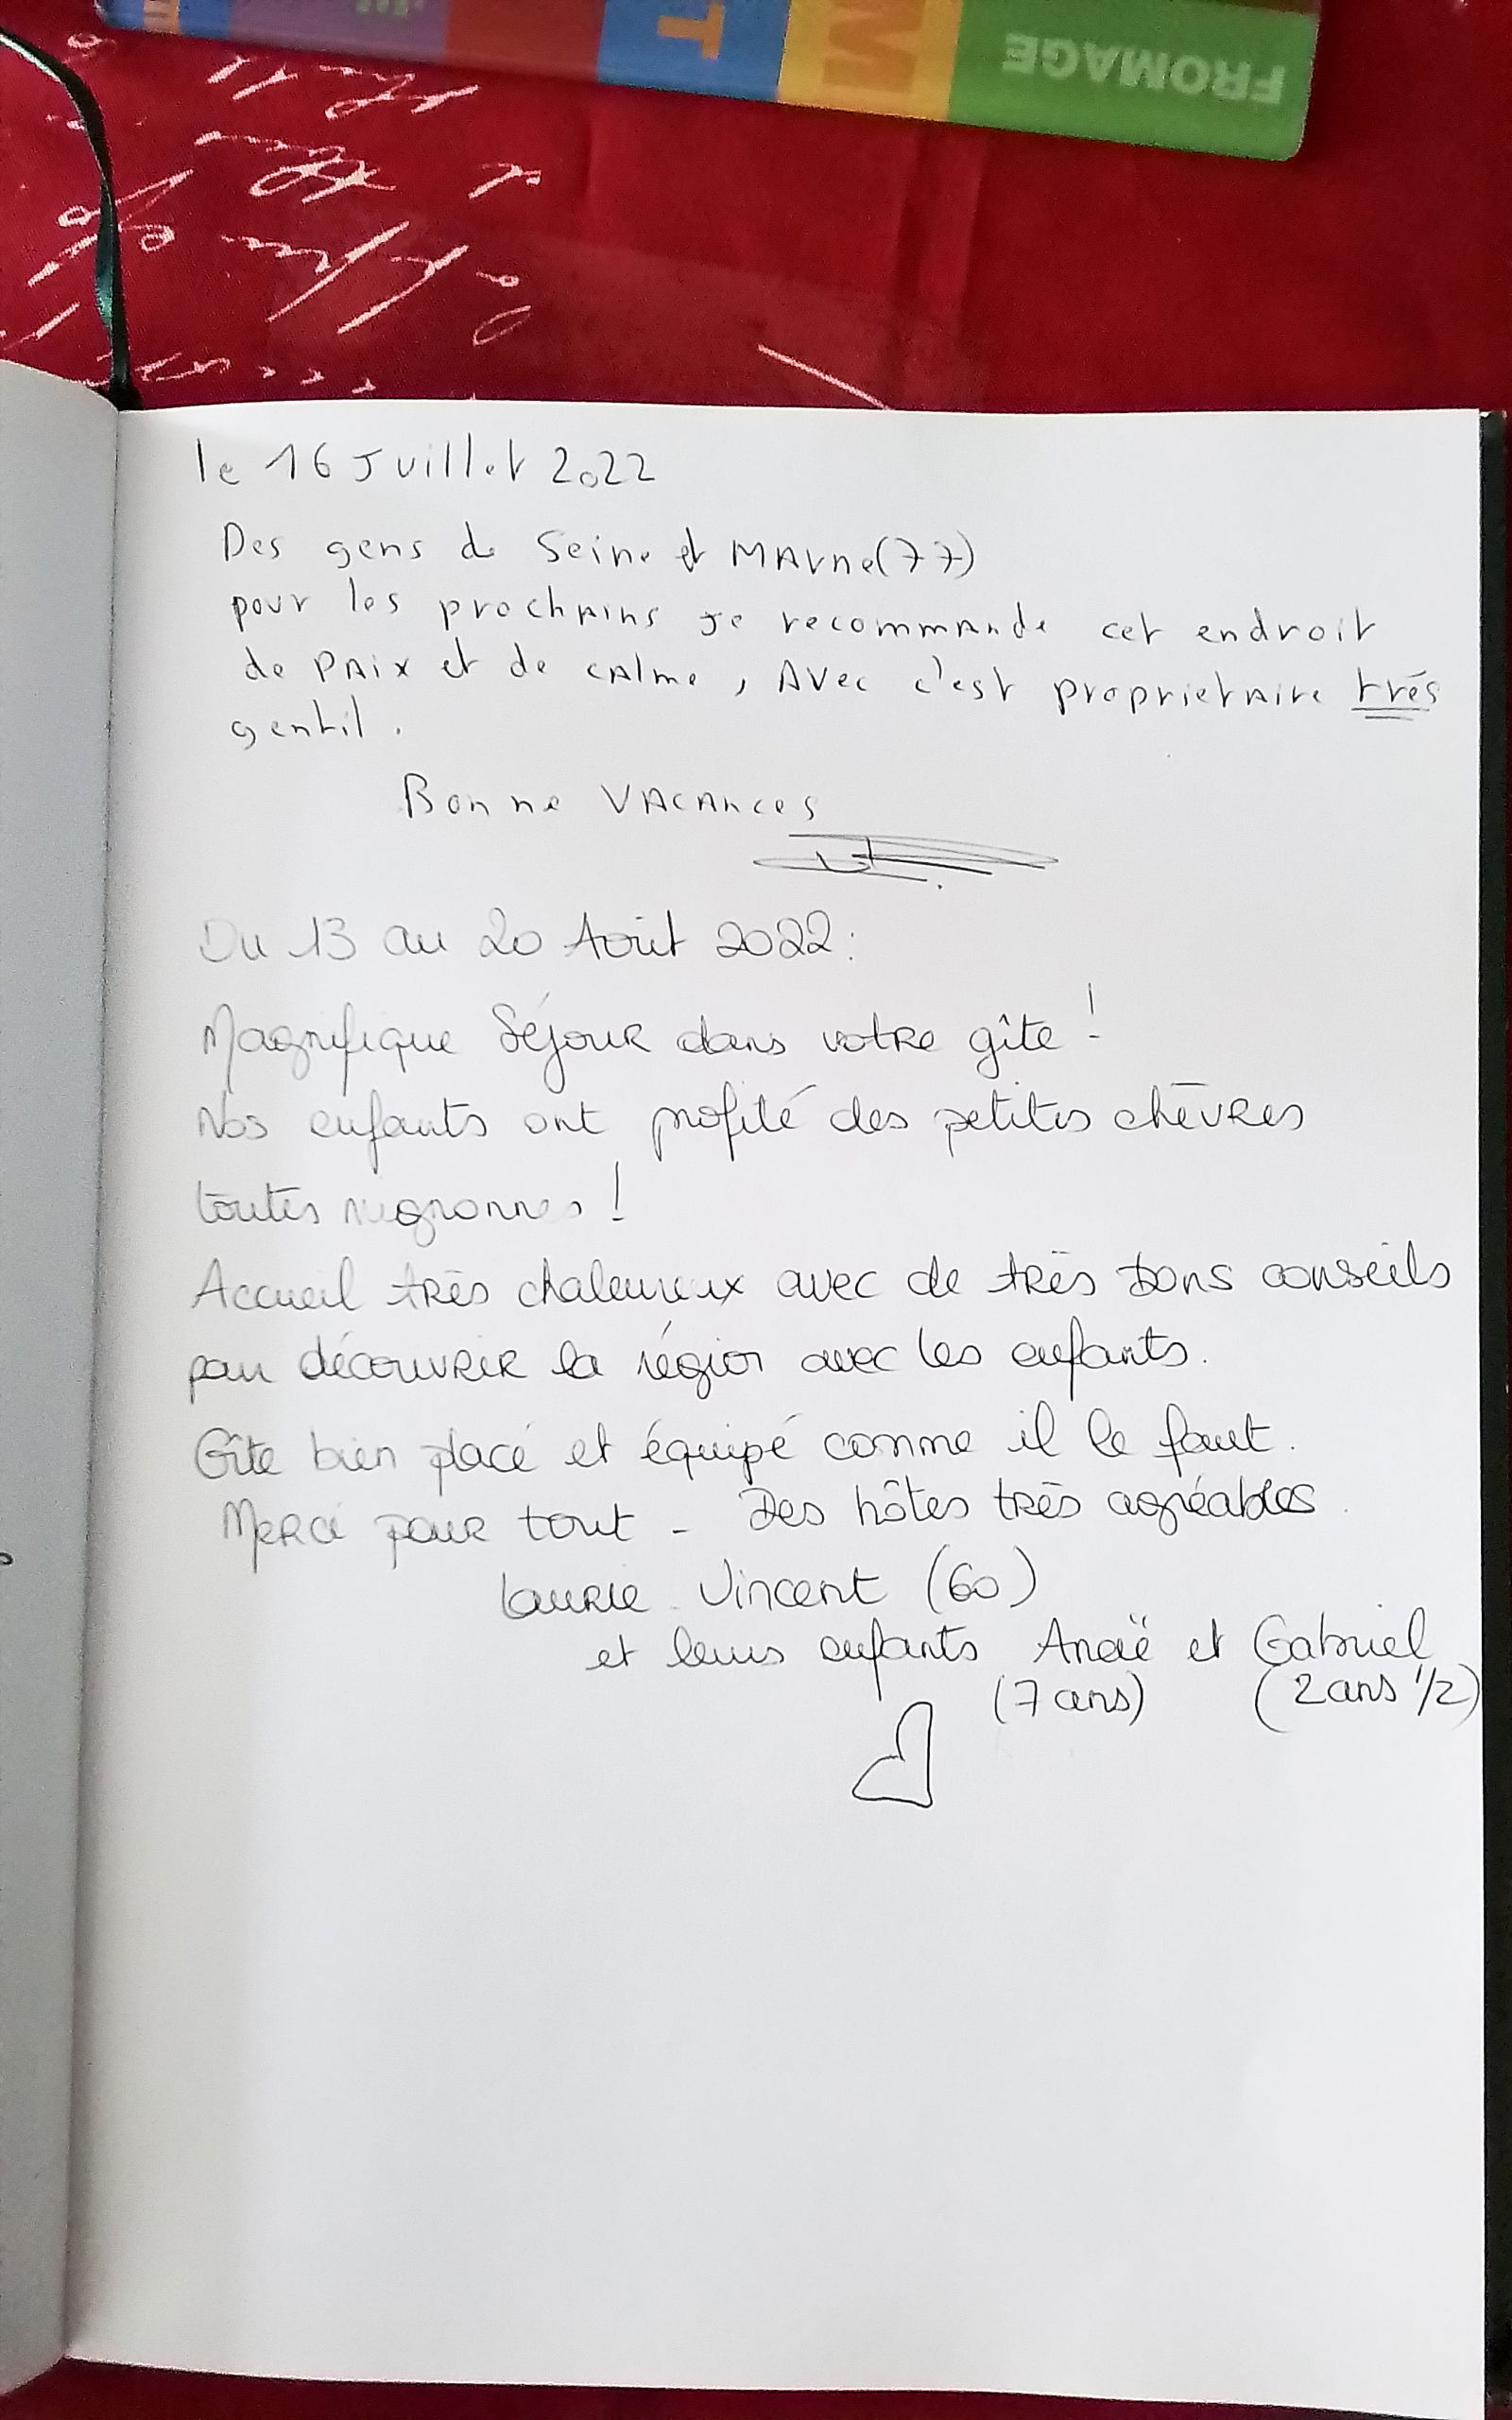 FROMAGE
M
T
le 16 Juillet 2022
Des gens de Seine et MArne (77)
pour les prochAins je recommAnde cet endroit
de PAix et de cAlme, AVec c'est proprietAire très
gentil.
Bonne VACAnces
Du 13 au 20 Août 2022:
Magnifique Séjour dans votre gîte !
Nos enfants ont profité des petites chèvres
toutes mignonnes !
Accueil très chaleureux avec de très bons conseils
pour découvrir la région avec les enfants.
Gîte bien placé et équipé comme il le faut.
Merci pour tout - Des hôtes très agréables.
Laurie Vincent (60)
et leurs enfants Anaë et Gabriel
(7 ans) (2 ans 1/2)